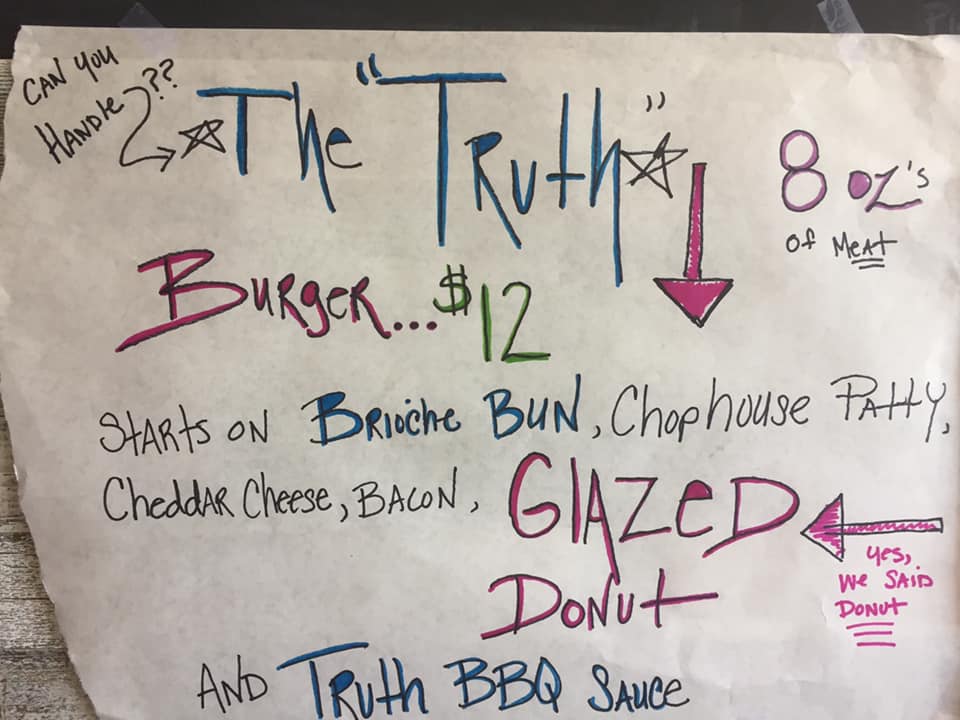 CAN YOU
HANDLE??
The "Truth"
8 oz's
of MEAT
BURGER...$12
STARTS ON BRIOCHE BUN, Chophouse PATTY,
Cheddar Cheese, BACON, GLAZED
DONUT
yes,
WE SAID
DONUT
AND TRUTH BBQ SAUCE